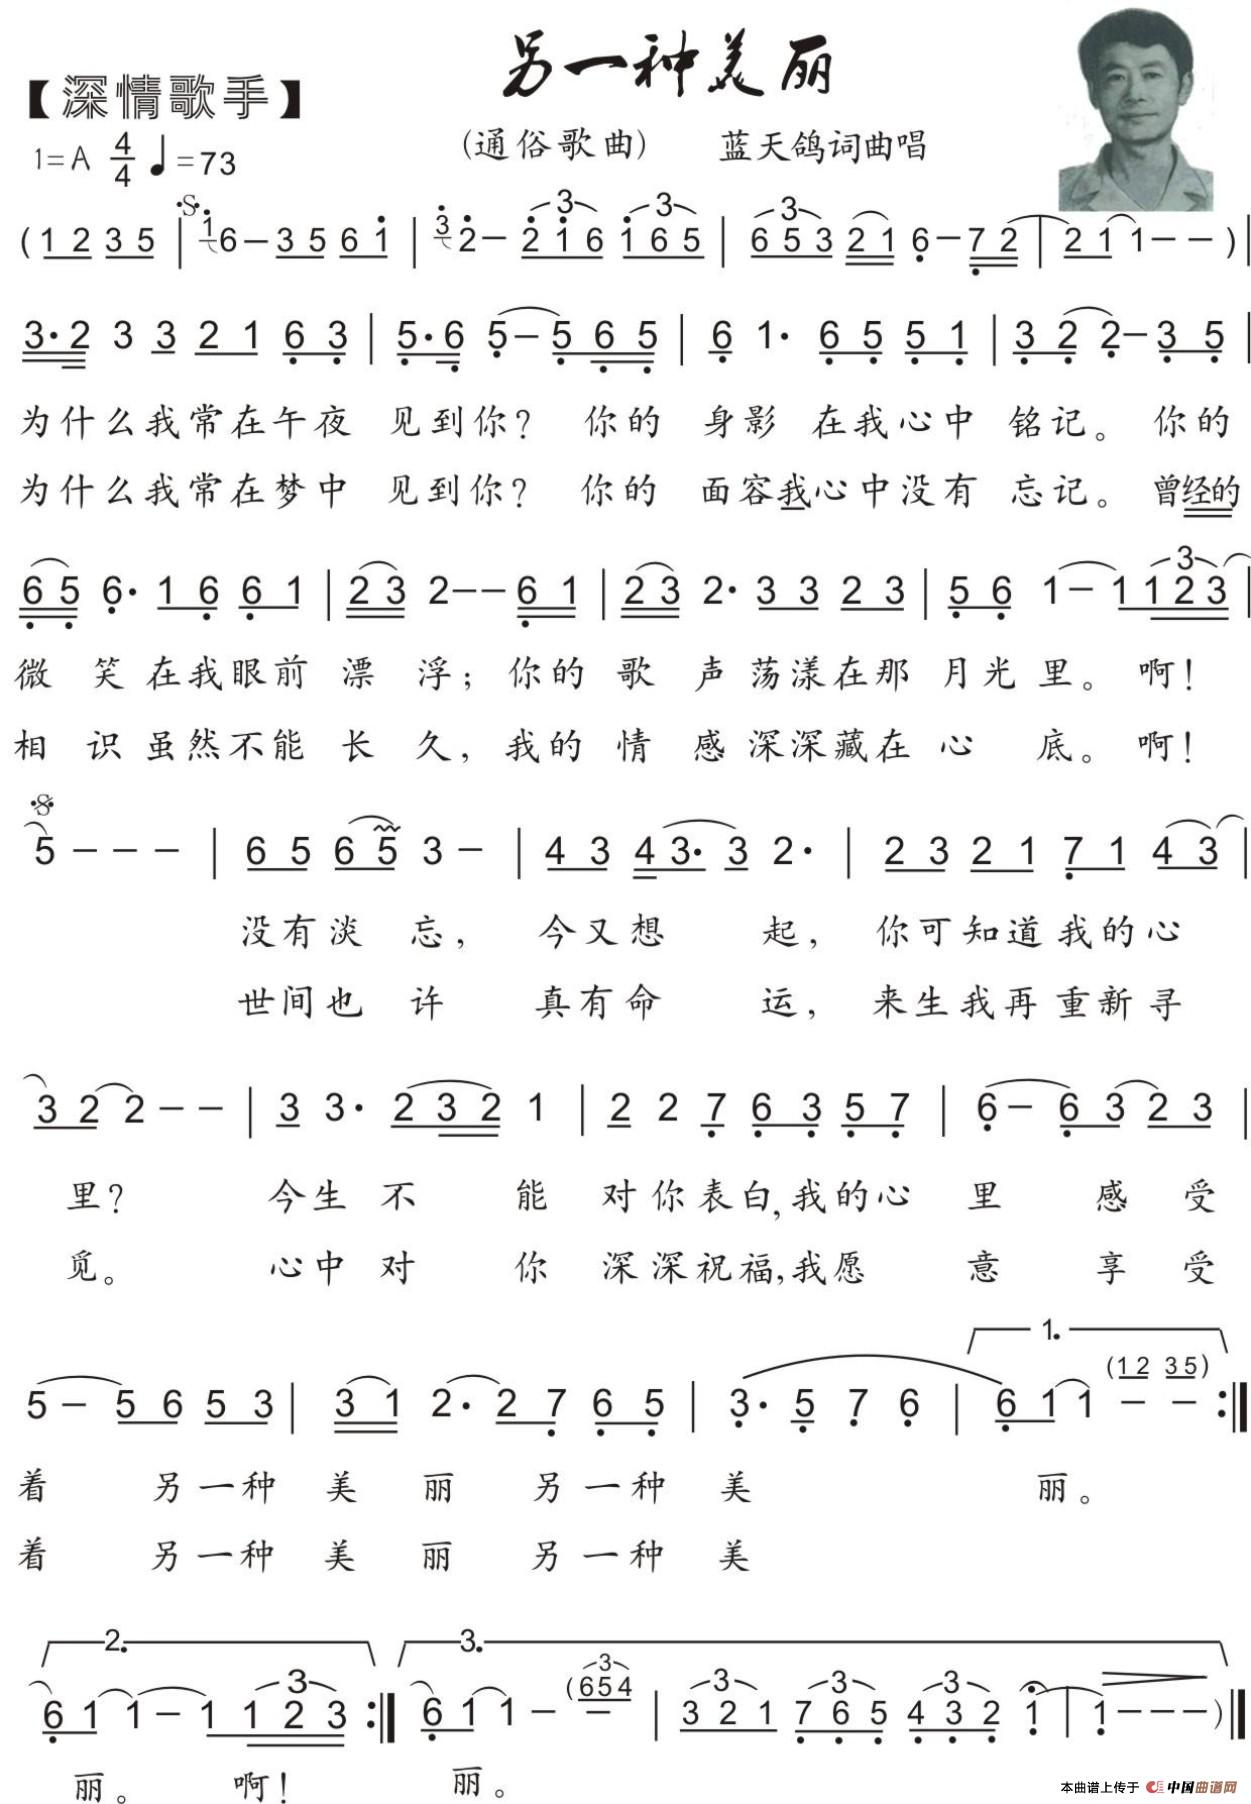 另一种美丽
【深情歌手】
(通俗歌曲) 蓝天鸽词曲唱
1=A 4/4 ♩=73
(1 2 3 5 | 1 6 – 3 5 6 1 | 3 2 – 2 1 6 1 6 5 | 6 5 3 2 1 6 – 7 2 | 2 1 1 – – ) |
3·2 3 3 2 1 6 3 | 5·6 5 – 5 6 5 | 6 1· 6 5 5 1 | 3 2 2 – 3 5 |
为什么我常在午夜 见到你？ 你的 身影 在我心中 铭记。 你的
为什么我常在梦中 见到你？ 你的 面容我心中没有 忘记。 曾经的
6 5 6· 1 6 6 1 | 2 3 2 – – 6 1 | 2 3 2· 3 3 2 3 | 5 6 1 – 1 1 2 3 |
微 笑 在我眼前 漂 浮； 你的 歌 声 荡漾在那 月光 里。 啊！
相 识 虽然不能 长 久， 我的 情 感 深深藏在 心 底。 啊！
5 – – – | 6 5 6 5 3 – | 4 3 4 3· 3 2· | 2 3 2 1 7 1 4 3 |
没有淡 忘， 今又想 起， 你可知道我的心
世间也 许 真有命 运， 来生我再重新寻
3 2 2 – – | 3 3· 2 3 2 1 | 2 2 7 6 3 5 7 | 6 – 6 3 2 3 |
里？ 今生 不 能 对你表白，我的心 里 感 受
觅。 心中 对 你 深深祝福，我愿 意 享 受
5 – 5 6 5 3 | 3 1 2· 2 7 6 5 | 3· 5 7 6 | 1. 6 1 1 – – (1 2 3 5) :‖
着 另一种 美 丽 另一种 美 丽。
着 另一种 美 丽 另一种 美
2. 6 1 1 – 1 1 2 3 :‖ 3. 6 1 1 – – (6 5 4 | 3 2 1 7 6 5 4 3 2 1 | 1 – – – ) ‖
丽。 啊！ 丽。
本曲谱上传于 中国曲谱网